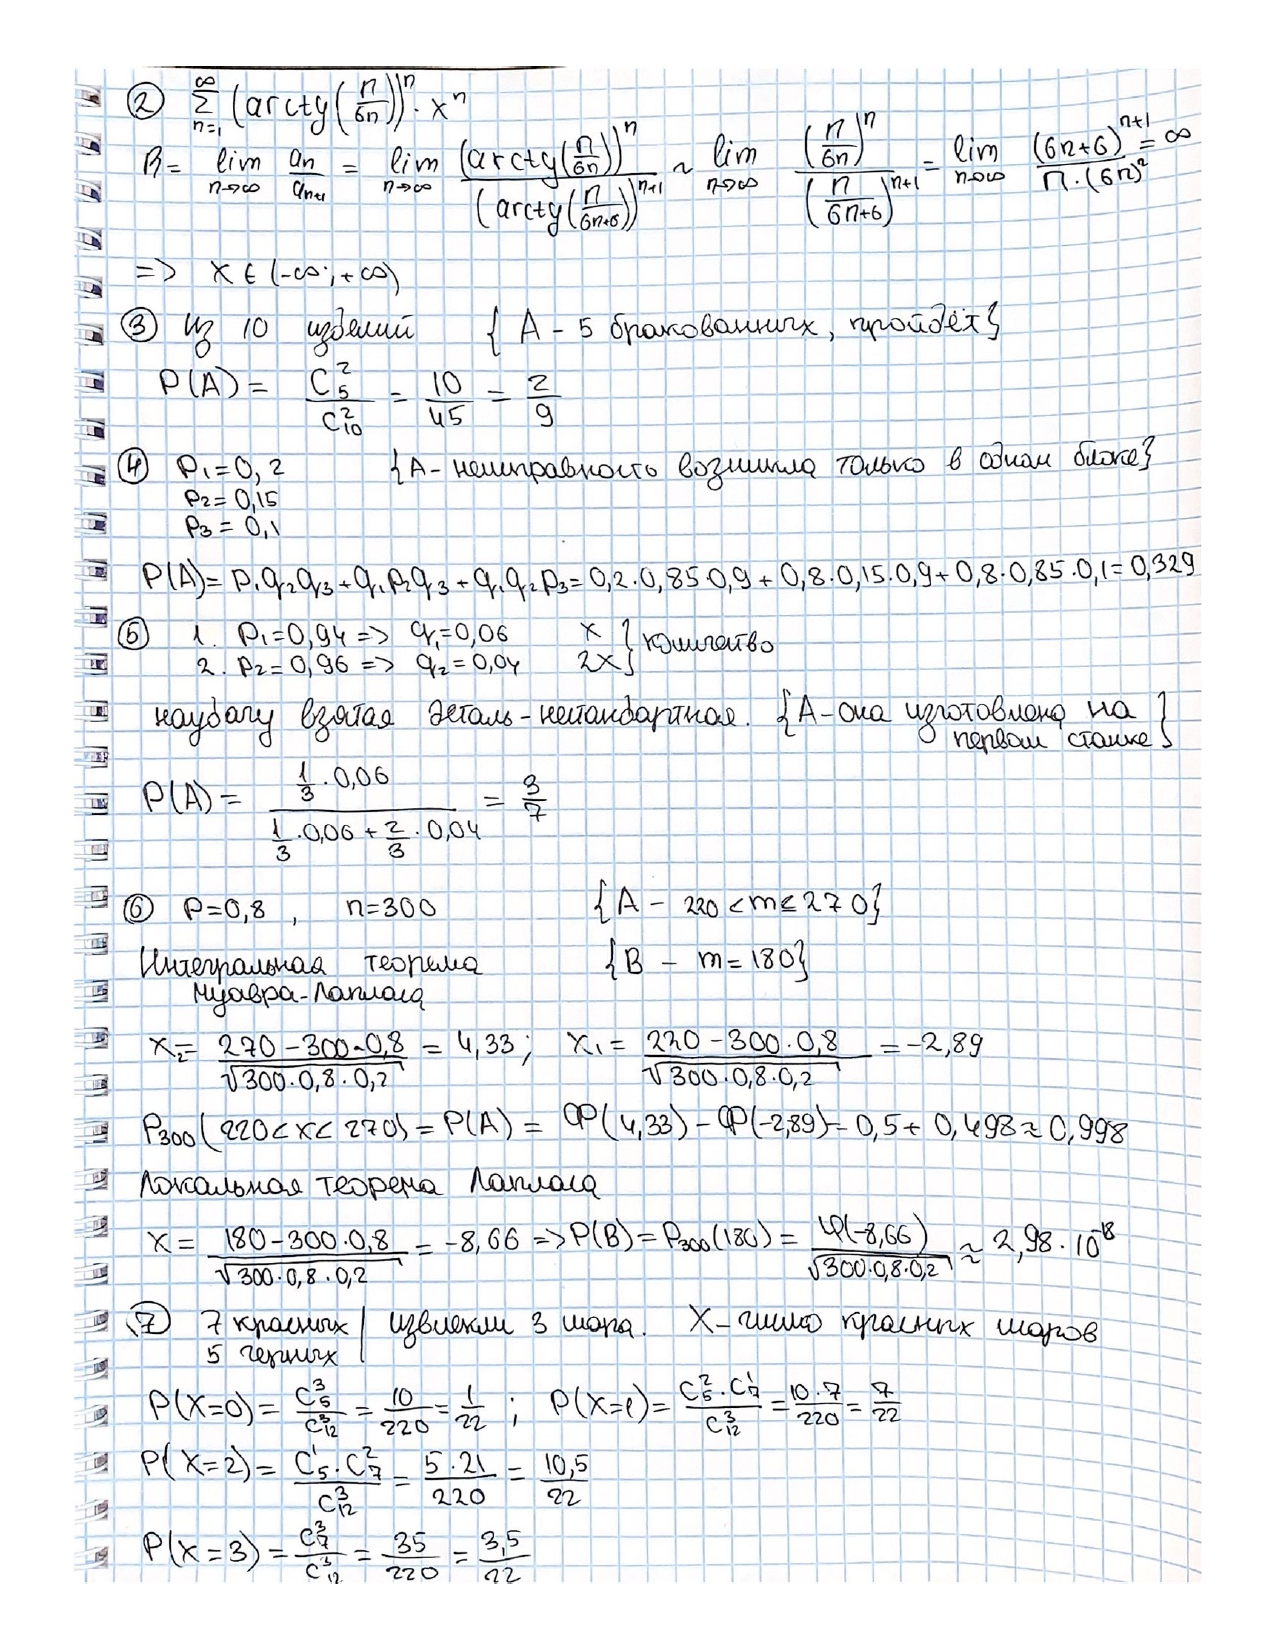 ② ∞∑n=1 (arctg(π/6n))ⁿ · xⁿ
R = lim n→∞ an/an+1 = lim n→∞ (arctg(π/6n))ⁿ / (arctg(π/6n+6))ⁿ⁺¹ ~ lim n→∞ (π/6n)ⁿ / (π/6n+6)ⁿ⁺¹ = lim n→∞ (6n+6)ⁿ⁺¹ / π·(6n)ⁿ = ∞
=> x ∈ (-∞; +∞)
③ Из 10 изделий {A - 5 бракованных, пройдёт}
P(A) = C₅²/C₁₀² = 10/45 = 2/9
④ P₁=0,2 {A - неисправность возникла только в одном блоке}
P₂=0,15
P₃=0,1
P(A)= p₁q₂q₃ + q₁p₂q₃ + q₁q₂p₃ = 0,2·0,85·0,9 + 0,8·0,15·0,9 + 0,8·0,85·0,1 = 0,329
⑤ 1. p₁=0,94 => q₁=0,06 x } количество
2. p₂=0,96 => q₂=0,04 2x }
наудачу взятая деталь - нестандартная. {A - она изготовлена на
первом станке}
P(A) = (1/3 · 0,06) / (1/3 · 0,06 + 2/3 · 0,04) = 3/7
⑥ P=0,8 , n=300 {A - 220 < m ≤ 270}
Интегральная теорема {B - m = 180}
Муавра-Лапласа
x₂ = (270 - 300·0,8)/√300·0,8·0,2 = 4,33; x₁ = (220 - 300·0,8)/√300·0,8·0,2 = -2,89
P₃₀₀(220 < x < 270) = P(A) = Ф(4,33) - Ф(-2,89) = 0,5 + 0,498 ≈ 0,998
Локальная теорема Лапласа
x = (180 - 300·0,8)/√300·0,8·0,2 = -8,66 => P(B) = P₃₀₀(180) = φ(-8,66)/√300·0,8·0,2 ≈ 2,98·10⁻¹⁸
⑦ 7 красных | извлекли 3 шара. X - число красных шаров
5 черных |
P(X=0) = C₅³/C₁₂³ = 10/220 = 1/22 ; P(X=1) = C₅²·C₇¹/C₁₂³ = 10·7/220 = 7/22
P(X=2) = C₅¹·C₇²/C₁₂³ = 5·21/220 = 10,5/22
P(X=3) = C₇³/C₁₂³ = 35/220 = 3,5/22